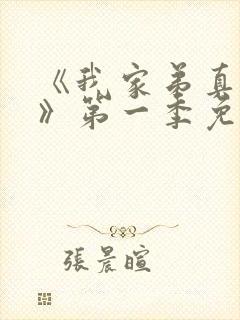 《我家弟真
》第一季免
張晨暄